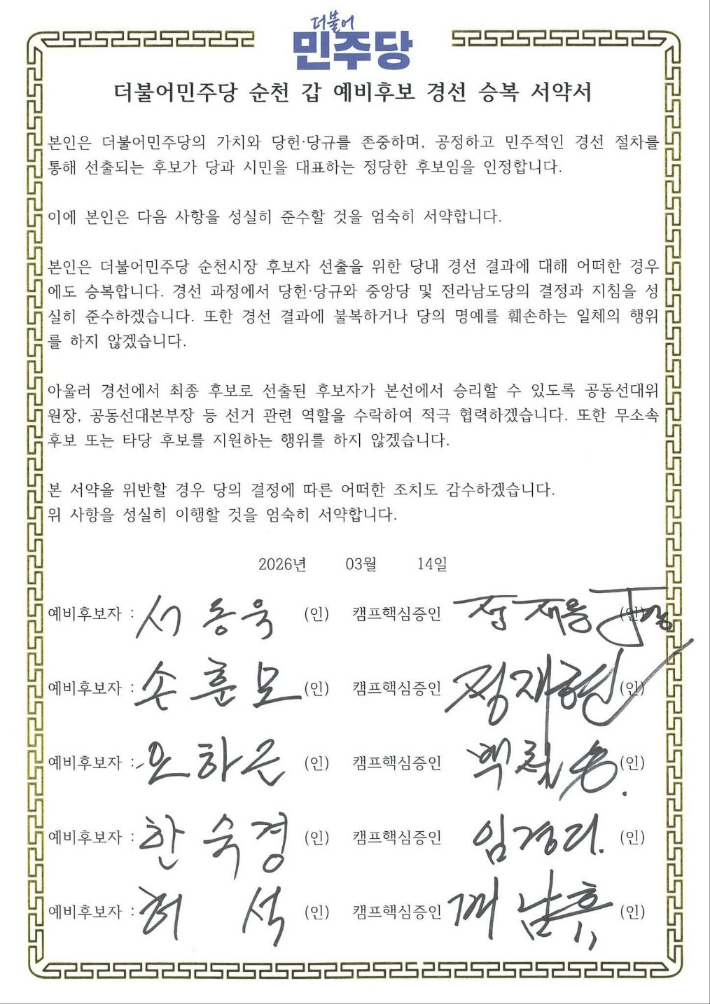 더불어
민주당
더불어민주당 순천 갑 예비후보 경선 승복 서약서
본인은 더불어민주당의 가치와 당헌·당규를 존중하며, 공정하고 민주적인 경선 절차를
통해 선출되는 후보가 당과 시민을 대표하는 정당한 후보임을 인정합니다.
이에 본인은 다음 사항을 성실히 준수할 것을 엄숙히 서약합니다.
본인은 더불어민주당 순천시장 후보자 선출을 위한 당내 경선 결과에 대해 어떠한 경우
에도 승복합니다. 경선 과정에서 당헌·당규와 중앙당 및 전라남도당의 결정과 지침을 성
실히 준수하겠습니다. 또한 경선 결과에 불복하거나 당의 명예를 훼손하는 일체의 행위
를 하지 않겠습니다.
아울러 경선에서 최종 후보로 선출된 후보자가 본선에서 승리할 수 있도록 공동선대위
원장, 공동선대본부장 등 선거 관련 역할을 수락하여 적극 협력하겠습니다. 또한 무소속
후보 또는 타당 후보를 지원하는 행위를 하지 않겠습니다.
본 서약을 위반할 경우 당의 결정에 따른 어떠한 조치도 감수하겠습니다.
위 사항을 성실히 이행할 것을 엄숙히 서약합니다.
2026년 03월 14일
예비후보자 : 서동욱 (인) 캠프핵심증인 (인)
예비후보자 : 손훈모 (인) 캠프핵심증인 정재현 (인)
예비후보자 : 오하근 (인) 캠프핵심증인 (인)
예비후보자 : 한숙경 (인) 캠프핵심증인 (인)
예비후보자 : 허석 (인) 캠프핵심증인 (인)